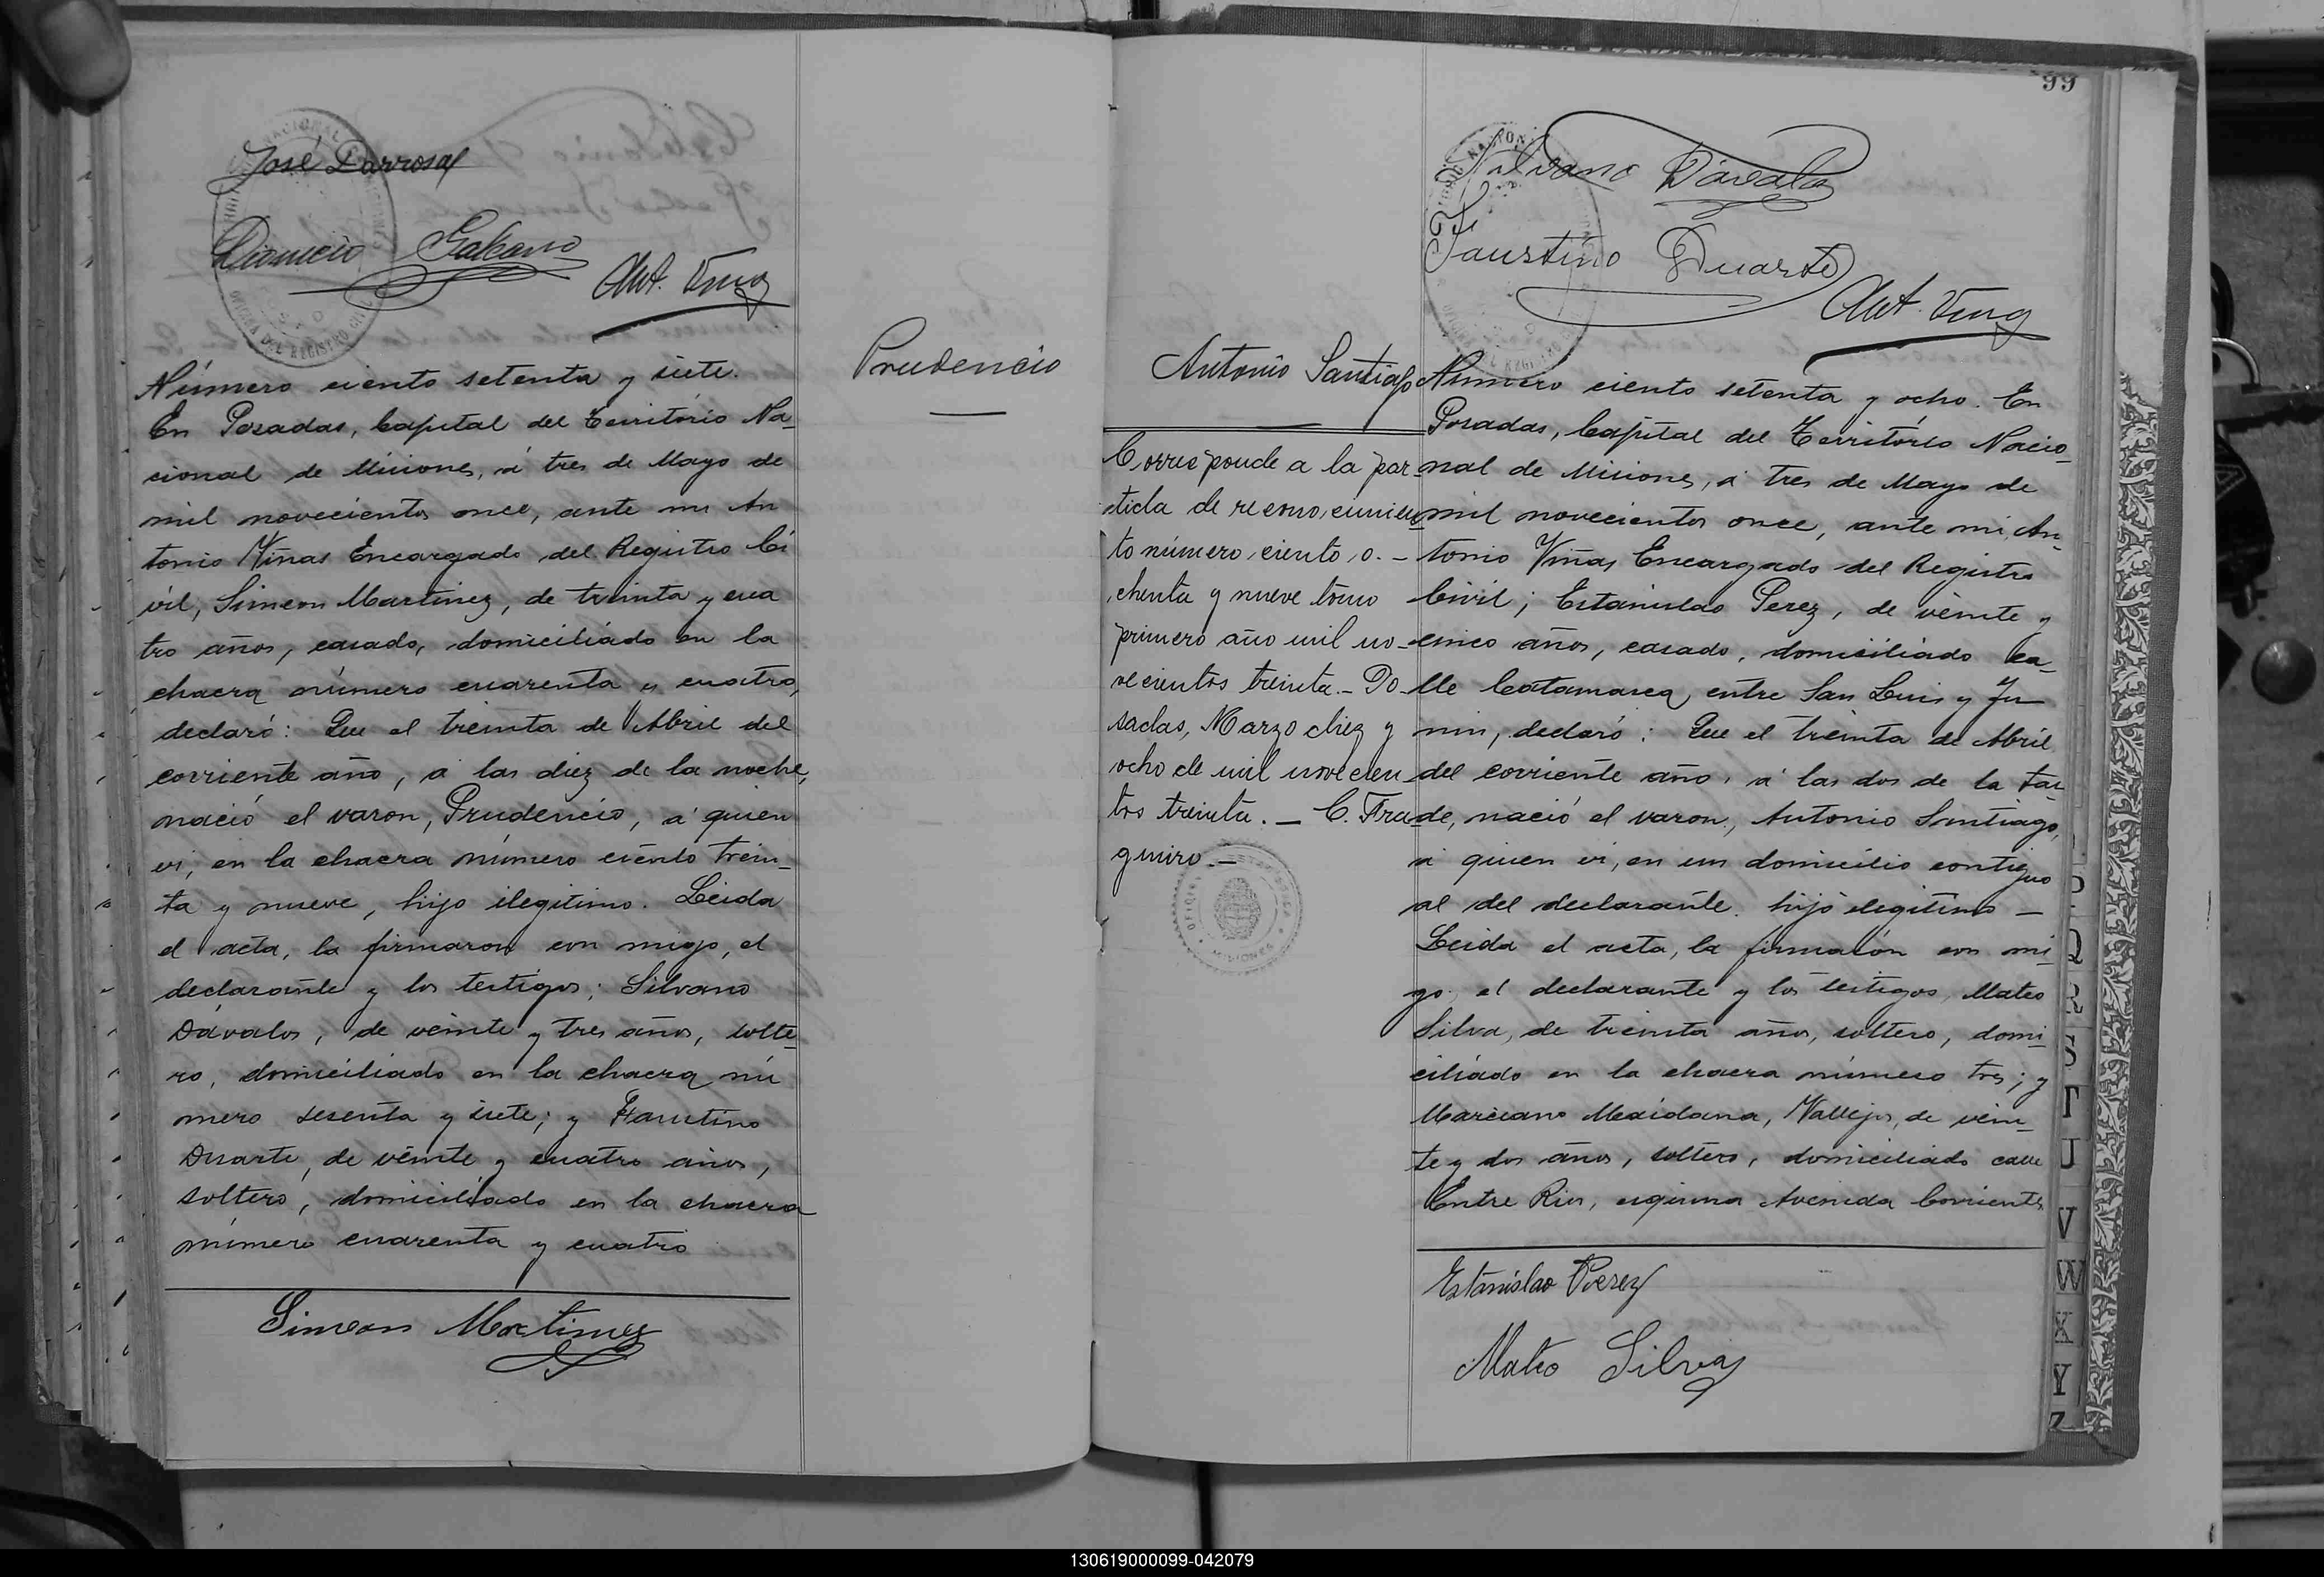 José Larrosa
Dionicio Galeano
Ant. Viñas
Número ciento setenta y siete.
En Posadas, Capital del Territorio Na-
cional de Misiones, á tres de Mayo de
mil novecientos once, ante mi An
tonio Viñas Encargado del Registro Ci
vil, Simeon Martinez, de treinta y cua
tro años, casado, domiciliado en la
chacra número cuarenta y cuatro,
declaró: Que el treinta de Abril del
corriente año, á las diez de la noche,
nació el varon, Prudencio, á quien
vi, en la chacra número ciento trein-
ta y nueve, hijo ilegitimo. Leida
el acta, la firmaron con migo, el
declarante y los testigos; Silvano
Dávalos, de veinte y tres años, solte-
ro, domiciliado en la chacra nú
mero sesenta y siete; y Faustino
Duarte, de veinte y cuatro años,
soltero, domiciliado en la chacra
número cuarenta y cuatro
Simeon Martinez
Prudencio
99
Silvano Dávalos
Faustino Duarte
Ant. Viñas
Antonio Santiago
Corresponde a la par-
tida de reconocimien-
to número ciento o.-
chenta y nueve tomo
primero año mil no-
vecientos treinta.- Po-
sadas, Marzo diez y
ocho de mil novecien-
tos treinta. - C. Fra-
guiro.-
MISIONES
Número ciento setenta y ocho. En
Posadas, Capital del Territorio Nacio-
nal de Misiones, á tres de Mayo de
mil novecientos once, ante mi, An-
tonio Viñas Encargado del Registro
Civil; Estanislao Perez, de veinte y
cinco años, casado, domiciliado ca-
lle Catamarca, entre San Luis y Ju
nin, declaró: Que el treinta de Abril
del corriente año, á las dos de la tar-
de, nació el varon, Antonio Santiago,
á quien vi, en un domicilio contiguo
al del declarante. hijo ilegitimo -
Leida el acta, la firmarón con mi-
go, el declarante y los testigos, Mateo
Silva, de treinta años, soltero, domi-
ciliado en la chacra número tres; y
Marciano Maidana, Vallejos, de vein-
te y dos años, soltero, domiciliado calle
Entre Rios, esquina Avenida Corrientes
Estanislao Perez
Mateo Silva
Q
R
S
T
U
V
W
X
Y
Z
130619000099-042079